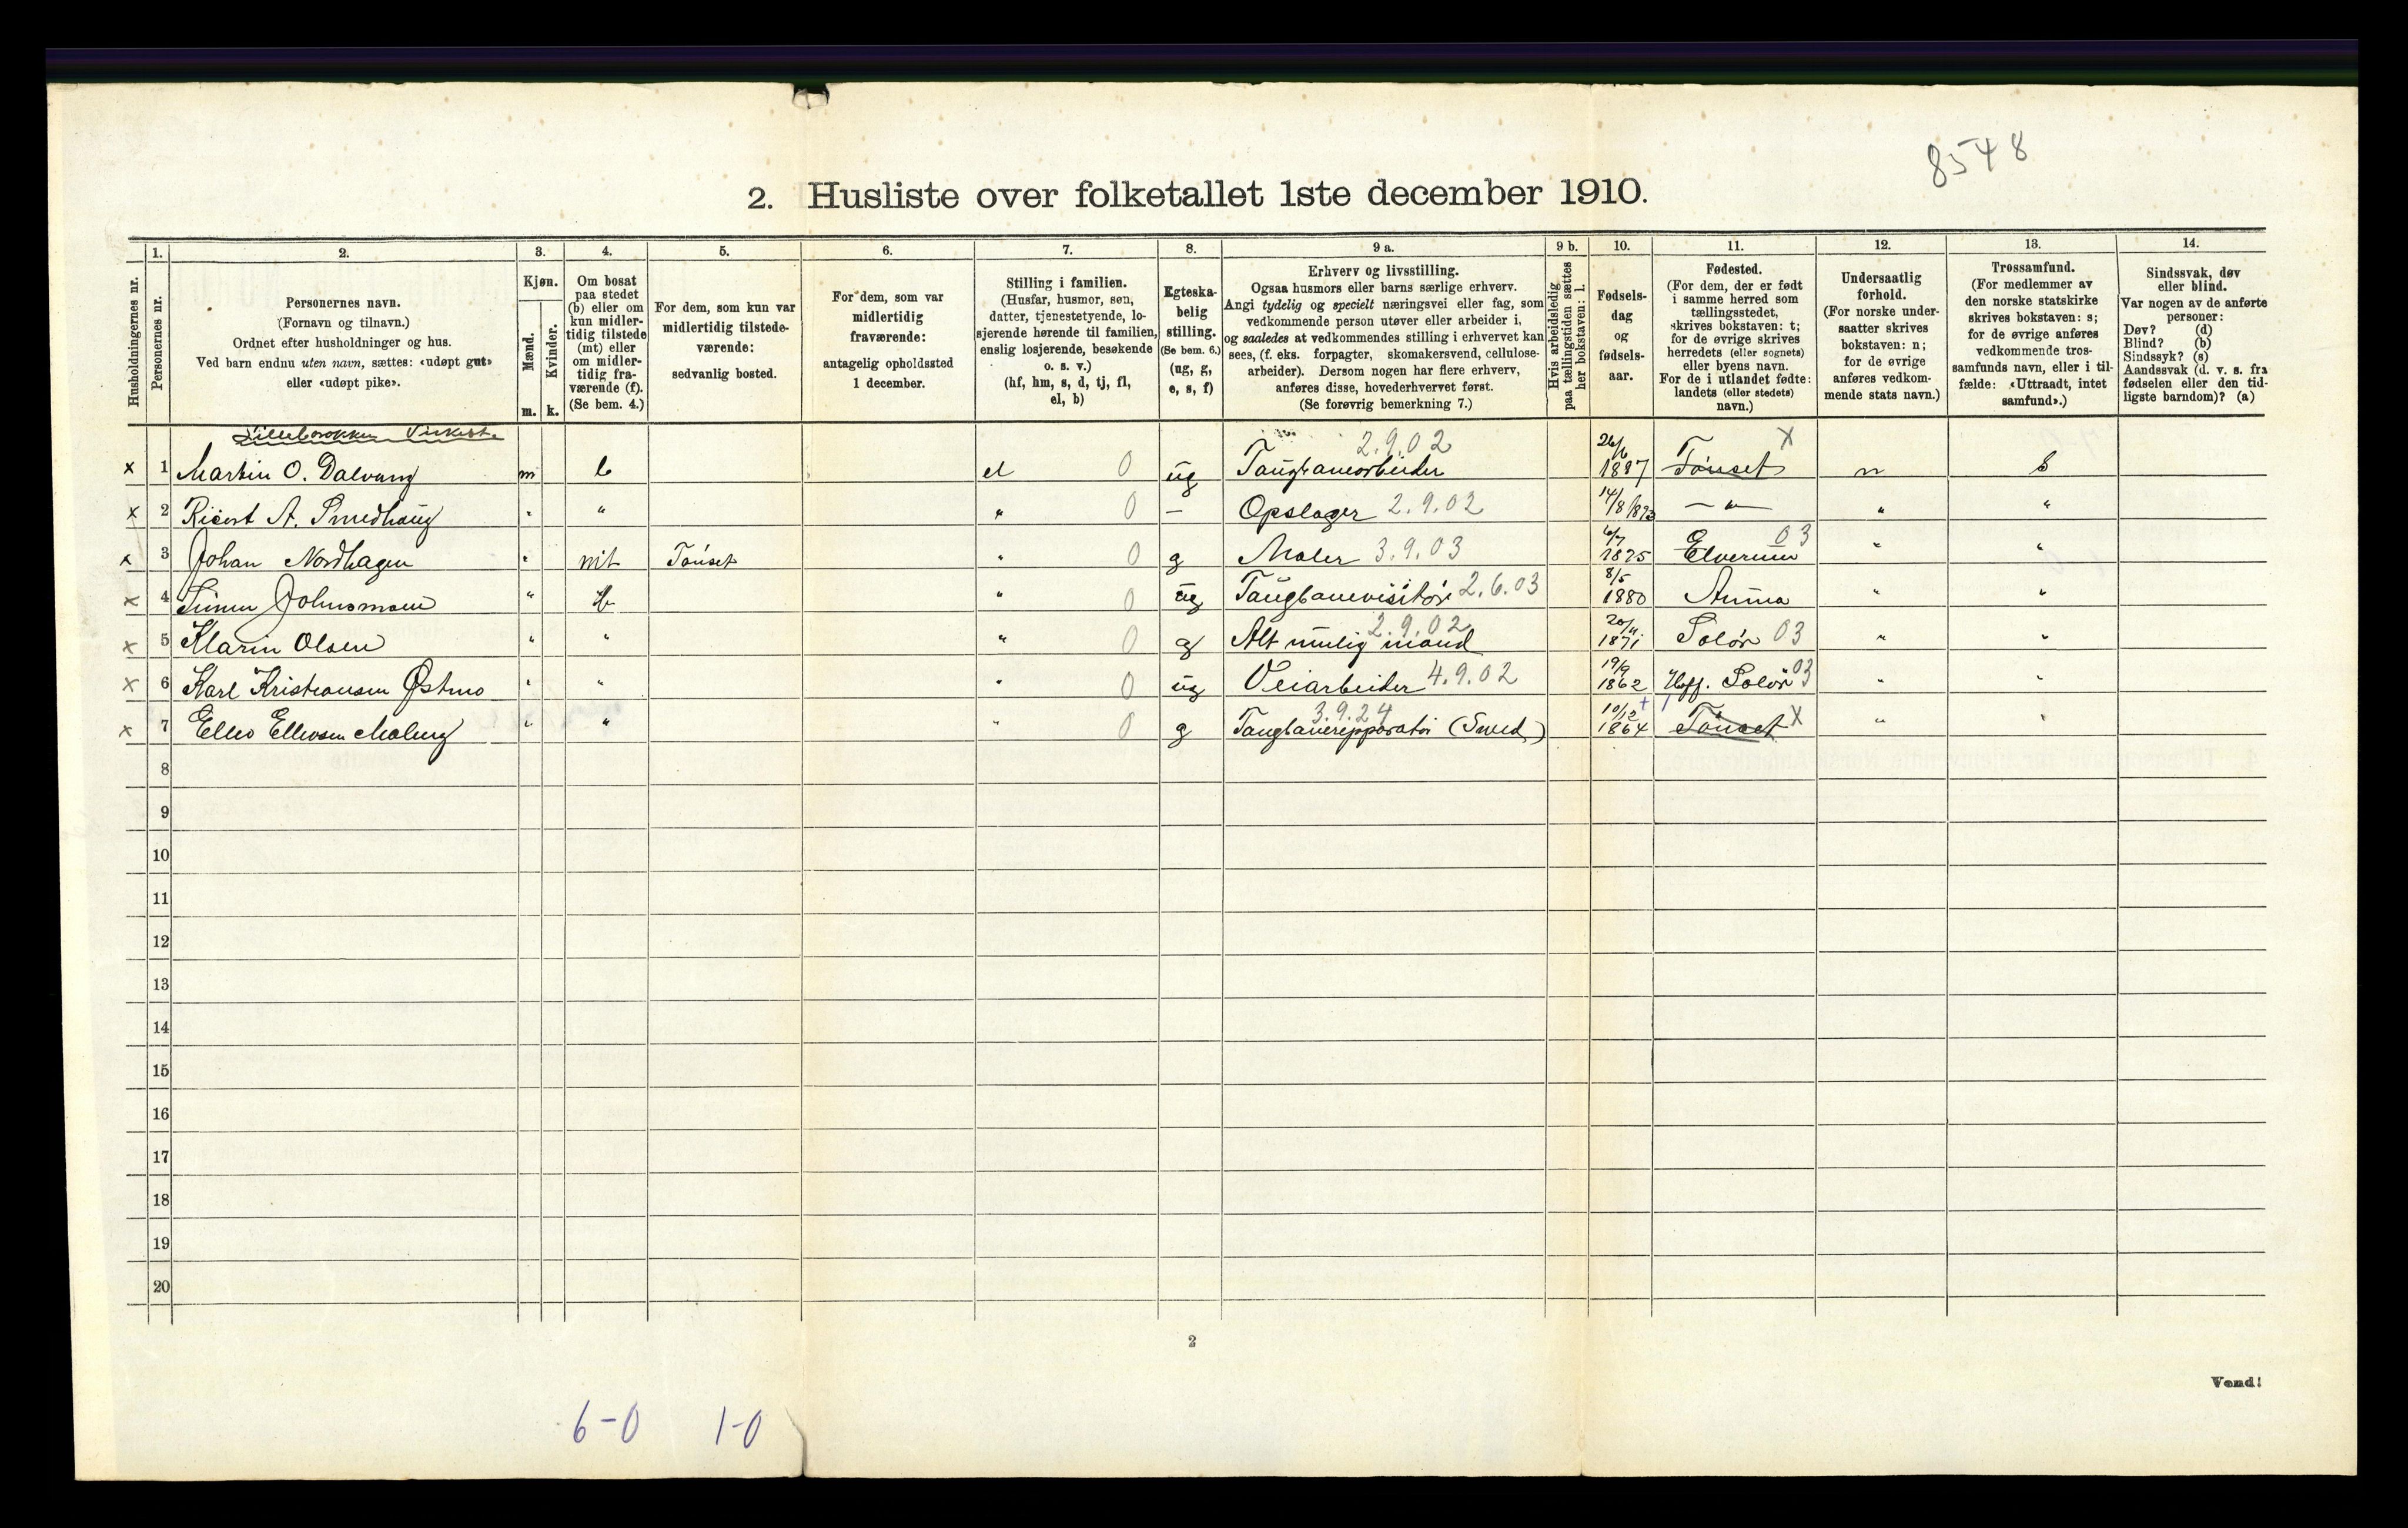 8548
2. Husliste over folketallet 1ste december 1910.
Husholdningernes nr.
1.
Personernes nr.
2.
Personernes navn.
(Fornavn og tilnavn.)
Ordnet efter husholdninger og hus.
Ved barn endnu uten navn, sættes: «udøpt gut»
eller «udøpt pike».
3.
Kjøn.
Mænd.
Kvinder.
m. k.
4.
Om bosat
paa stedet
(b) eller om
kun midler-
tidig tilstede
(mt) eller
om midler-
tidig fra-
værende (f).
(Se bem. 4.)
5.
For dem, som kun var
midlertidig tilstede-
værende:
sedvanlig bosted.
6.
For dem, som var
midlertidig
fraværende:
antagelig opholdssted
1 december.
7.
Stilling i familien.
(Husfar, husmor, søn,
datter, tjenestetyende, lo-
sjerende hørende til familien,
enslig losjerende, besøkende
o. s. v.)
(hf, hm, s, d, tj, fl,
el, b)
8.
Egteska-
belig
stilling.
(Se bem. 6.)
(ug, g,
e, s, f)
9 a.
Erhverv og livsstilling.
Ogsaa husmors eller barns særlige erhverv.
Angi tydelig og specielt næringsvei eller fag, som
vedkommende person utøver eller arbeider i,
og saaledes at vedkommendes stilling i erhvervet kan
sees, (f. eks. forpagter, skomakersvend, cellulose-
arbeider). Dersom nogen har flere erhverv,
anføres disse, hovederhvervet først.
(Se forøvrig bemerkning 7.)
9 b.
Hvis arbeidsledig
paa tællingstiden sættes
her bokstaven: l.
10.
Fødsels-
dag
og
fødsels-
aar.
11.
Fødested.
(For dem, der er født
i samme herred som
tællingsstedet,
skrives bokstaven: t;
for de øvrige skrives
herredets (eller sognets)
eller byens navn.
For de i utlandet fødte:
landets (eller stedets)
navn.)
12.
Undersaatlig
forhold.
(For norske under-
saatter skrives
bokstaven: n;
for de øvrige
anføres vedkom-
mende stats navn.)
13.
Trossamfund.
(For medlemmer av
den norske statskirke
skrives bokstaven: s;
for de øvrige anføres
vedkommende tros-
samfunds navn, eller i til-
fælde: «Uttraadt, intet
samfund».)
14.
Sindssvak, døv
eller blind.
Var nogen av de anførte
personer:
Døv? (d)
Blind? (b)
Sindssyk? (s)
Aandssvak (d. v. s. fra
fødselen eller den tid-
ligste barndom)? (a)
x 1 Martin O. Dalvang m b el 0 ug Taugbanearbeider 2.9.02 26/6 1887 Tönset x n s
x 2 Ricert A. Smedhaug " " " 0 — Opslager 2.9.02 14/8 1893 — " — " "
x 3 Johan Nordhagen " mt Tönset " 0 g Maler 3.9.03 6/7 1875 Elverum 03 " "
x 4 Johnsmoen " b " 0 ug Taugbanevisitör 2.6.03 8/5 1880 " "
x 5 Martin Olsen " " " 0 g Alt mulig mand 2.9.02 20/11 1871 Solör 03 " "
x 6 Karl Kristiansen Østmo " " " 0 ug Veiarbeider 4.9.02 19/9 1862 Hoff. Solör 03 " "
x 7 Ellev Ellevsen Moberg " " " 0 g Taugbanerepparatör (Smed) 3.9.24 10/12 1864 Tönset x " "
8
9
10
11
12
13
14
15
16
17
18
19
20
2
Vend!
6-0 1-0